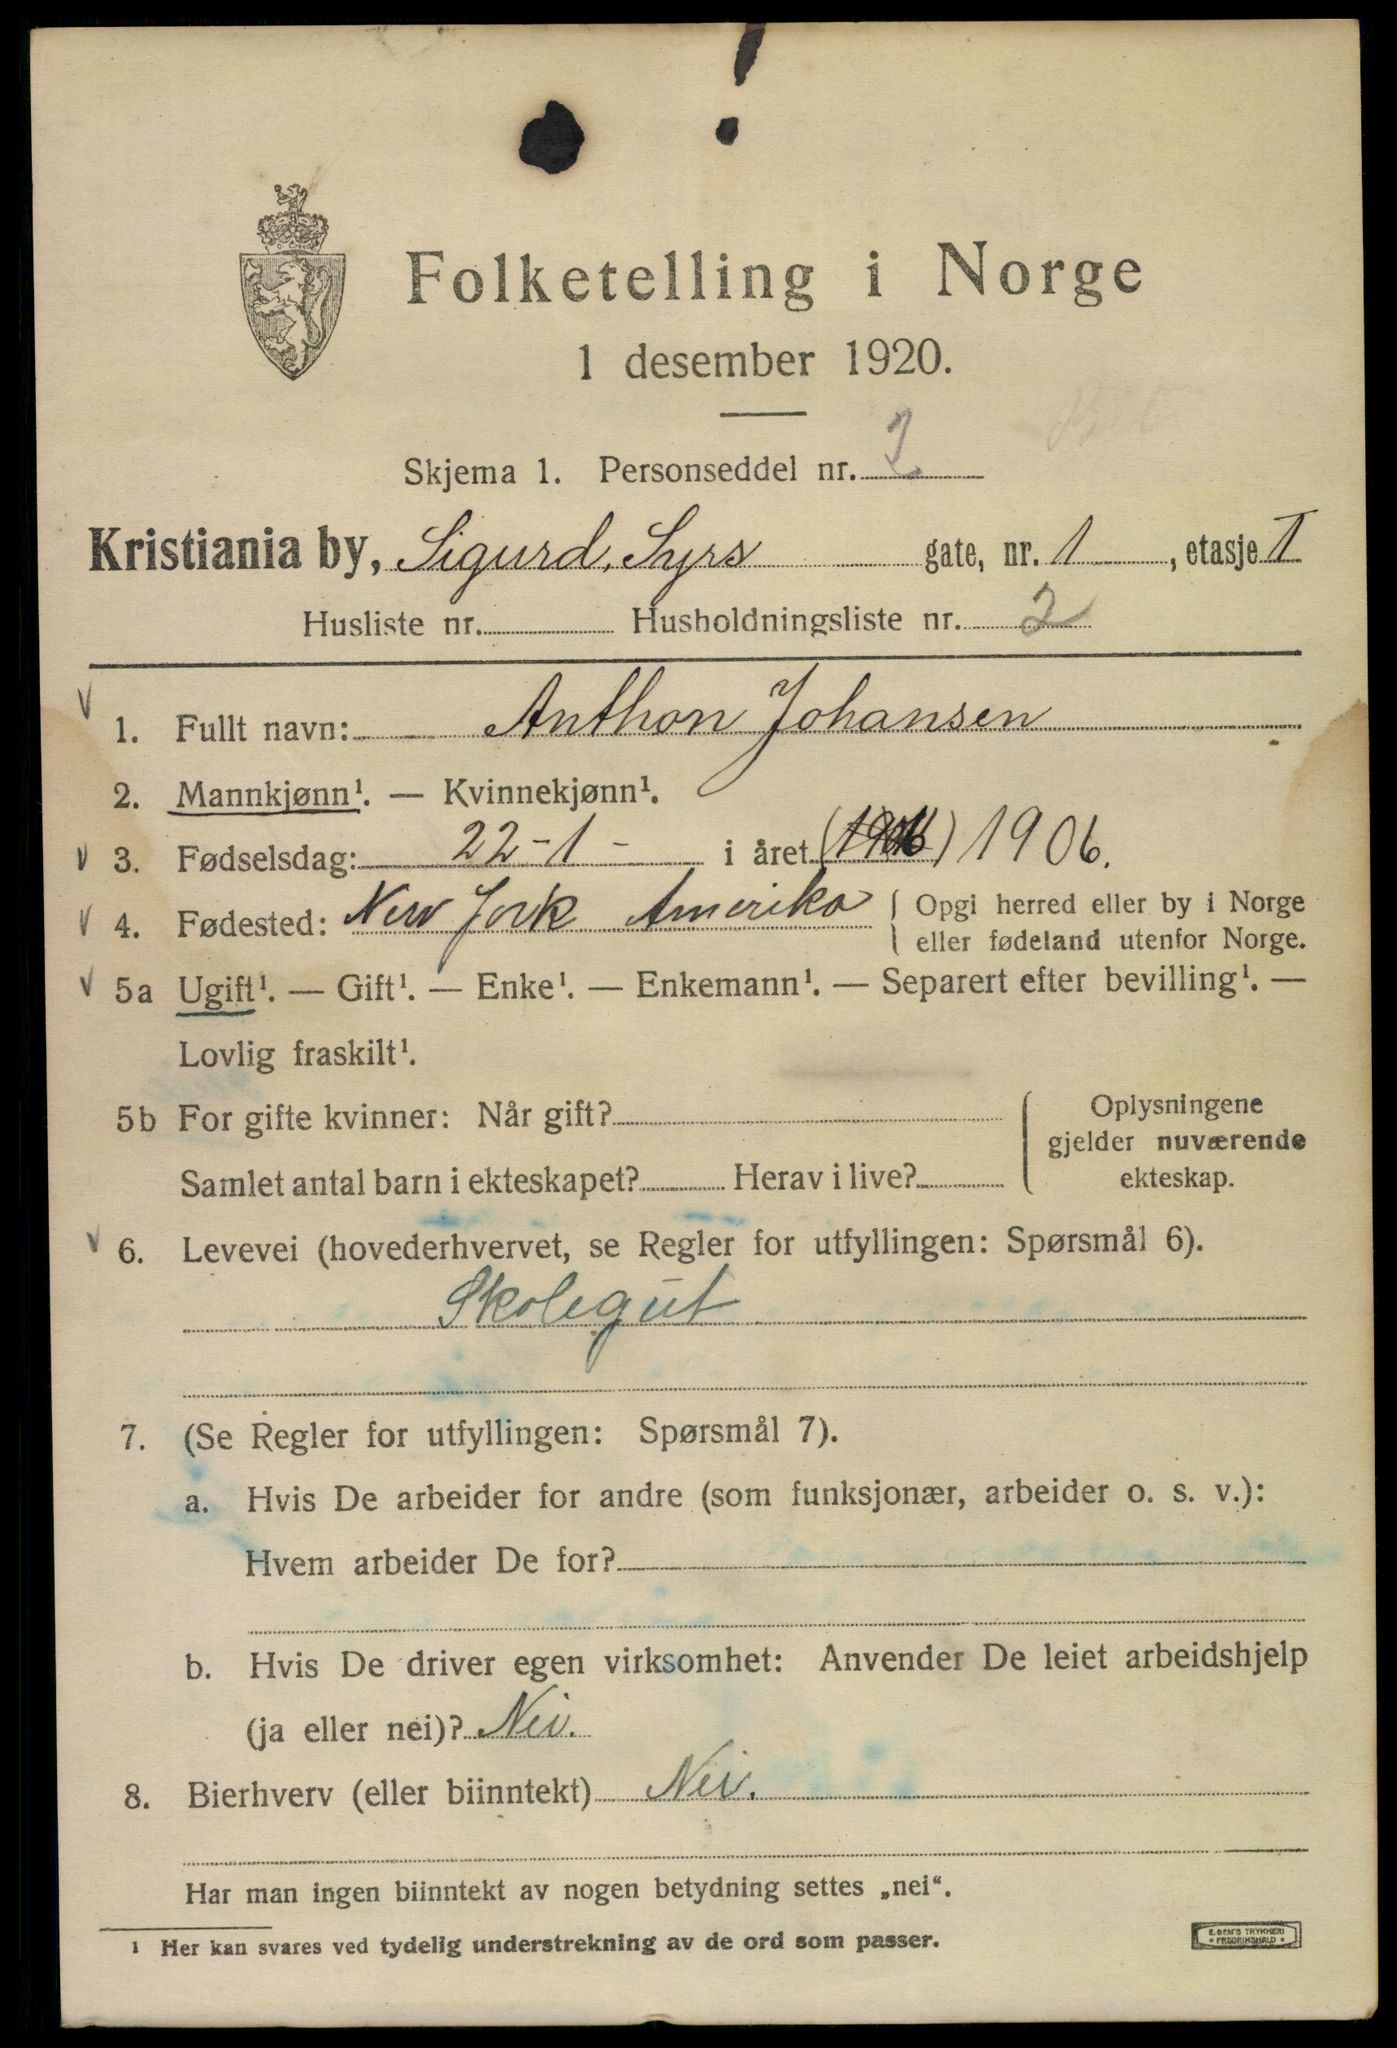 Folketelling i Norge
1 desember 1920.
Skjema 1. Personseddel nr. 2
Kristiania by, Sigurd, Syrs gate, nr. 1, etasje I
Husliste nr. Husholdningsliste nr. 2
1. Fullt navn: Anthon Johansen
2. Mannkjønn¹. — Kvinnekjønn¹.
3. Fødselsdag: 22-1- i året 1906.
4. Fødested: New Jork Amerika { Opgi herred eller by i Norge
eller fødeland utenfor Norge.
5a Ugift¹. — Gift¹. — Enke¹. — Enkemann¹. — Separert efter bevilling¹. —
Lovlig fraskilt¹.
5b For gifte kvinner: Når gift? { Oplysningene
gjelder nuværende
Samlet antal barn i ekteskapet? Herav i live? ekteskap.
6. Levevei (hovederhvervet, se Regler for utfyllingen: Spørsmål 6).
Skolegut
7. (Se Regler for utfyllingen: Spørsmål 7).
a. Hvis De arbeider for andre (som funksjonær, arbeider o. s. v.):
Hvem arbeider De for?
b. Hvis De driver egen virksomhet: Anvender De leiet arbeidshjelp
(ja eller nei)? Nei.
8. Bierhverv (eller biinntekt) Nei.
Har man ingen biinntekt av nogen betydning settes „nei“.
¹ Her kan svares ved tydelig understrekning av de ord som passer.
E. SEM'S TRYKKERI
FREDRIKSHALD